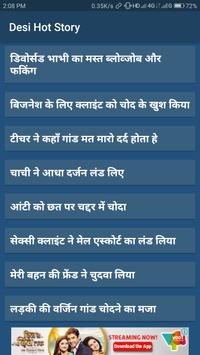 2:08 PM
0.35K/s
Desi Hot Story
डिवोर्सड भाभी का मस्त ब्लोव्जोब और
फकिंग
बिजनेश के लिए क्लाइंट को चोद के खुश किया
टीचर ने कहाँ गांड मत मारो दर्द होता हे
चाची ने आधा दर्जन लंड लिए
आंटी को छत पर चद्दर में चोदा
सेक्सी क्लाइंट ने मेल एस्कोर्ट का लंड लिया
मेरी बहन की फ्रेंड ने चुदवा लिया
लड़की की वर्जिन गांड चोदने का मजा
STREAMING NOW!
Download the App
voot